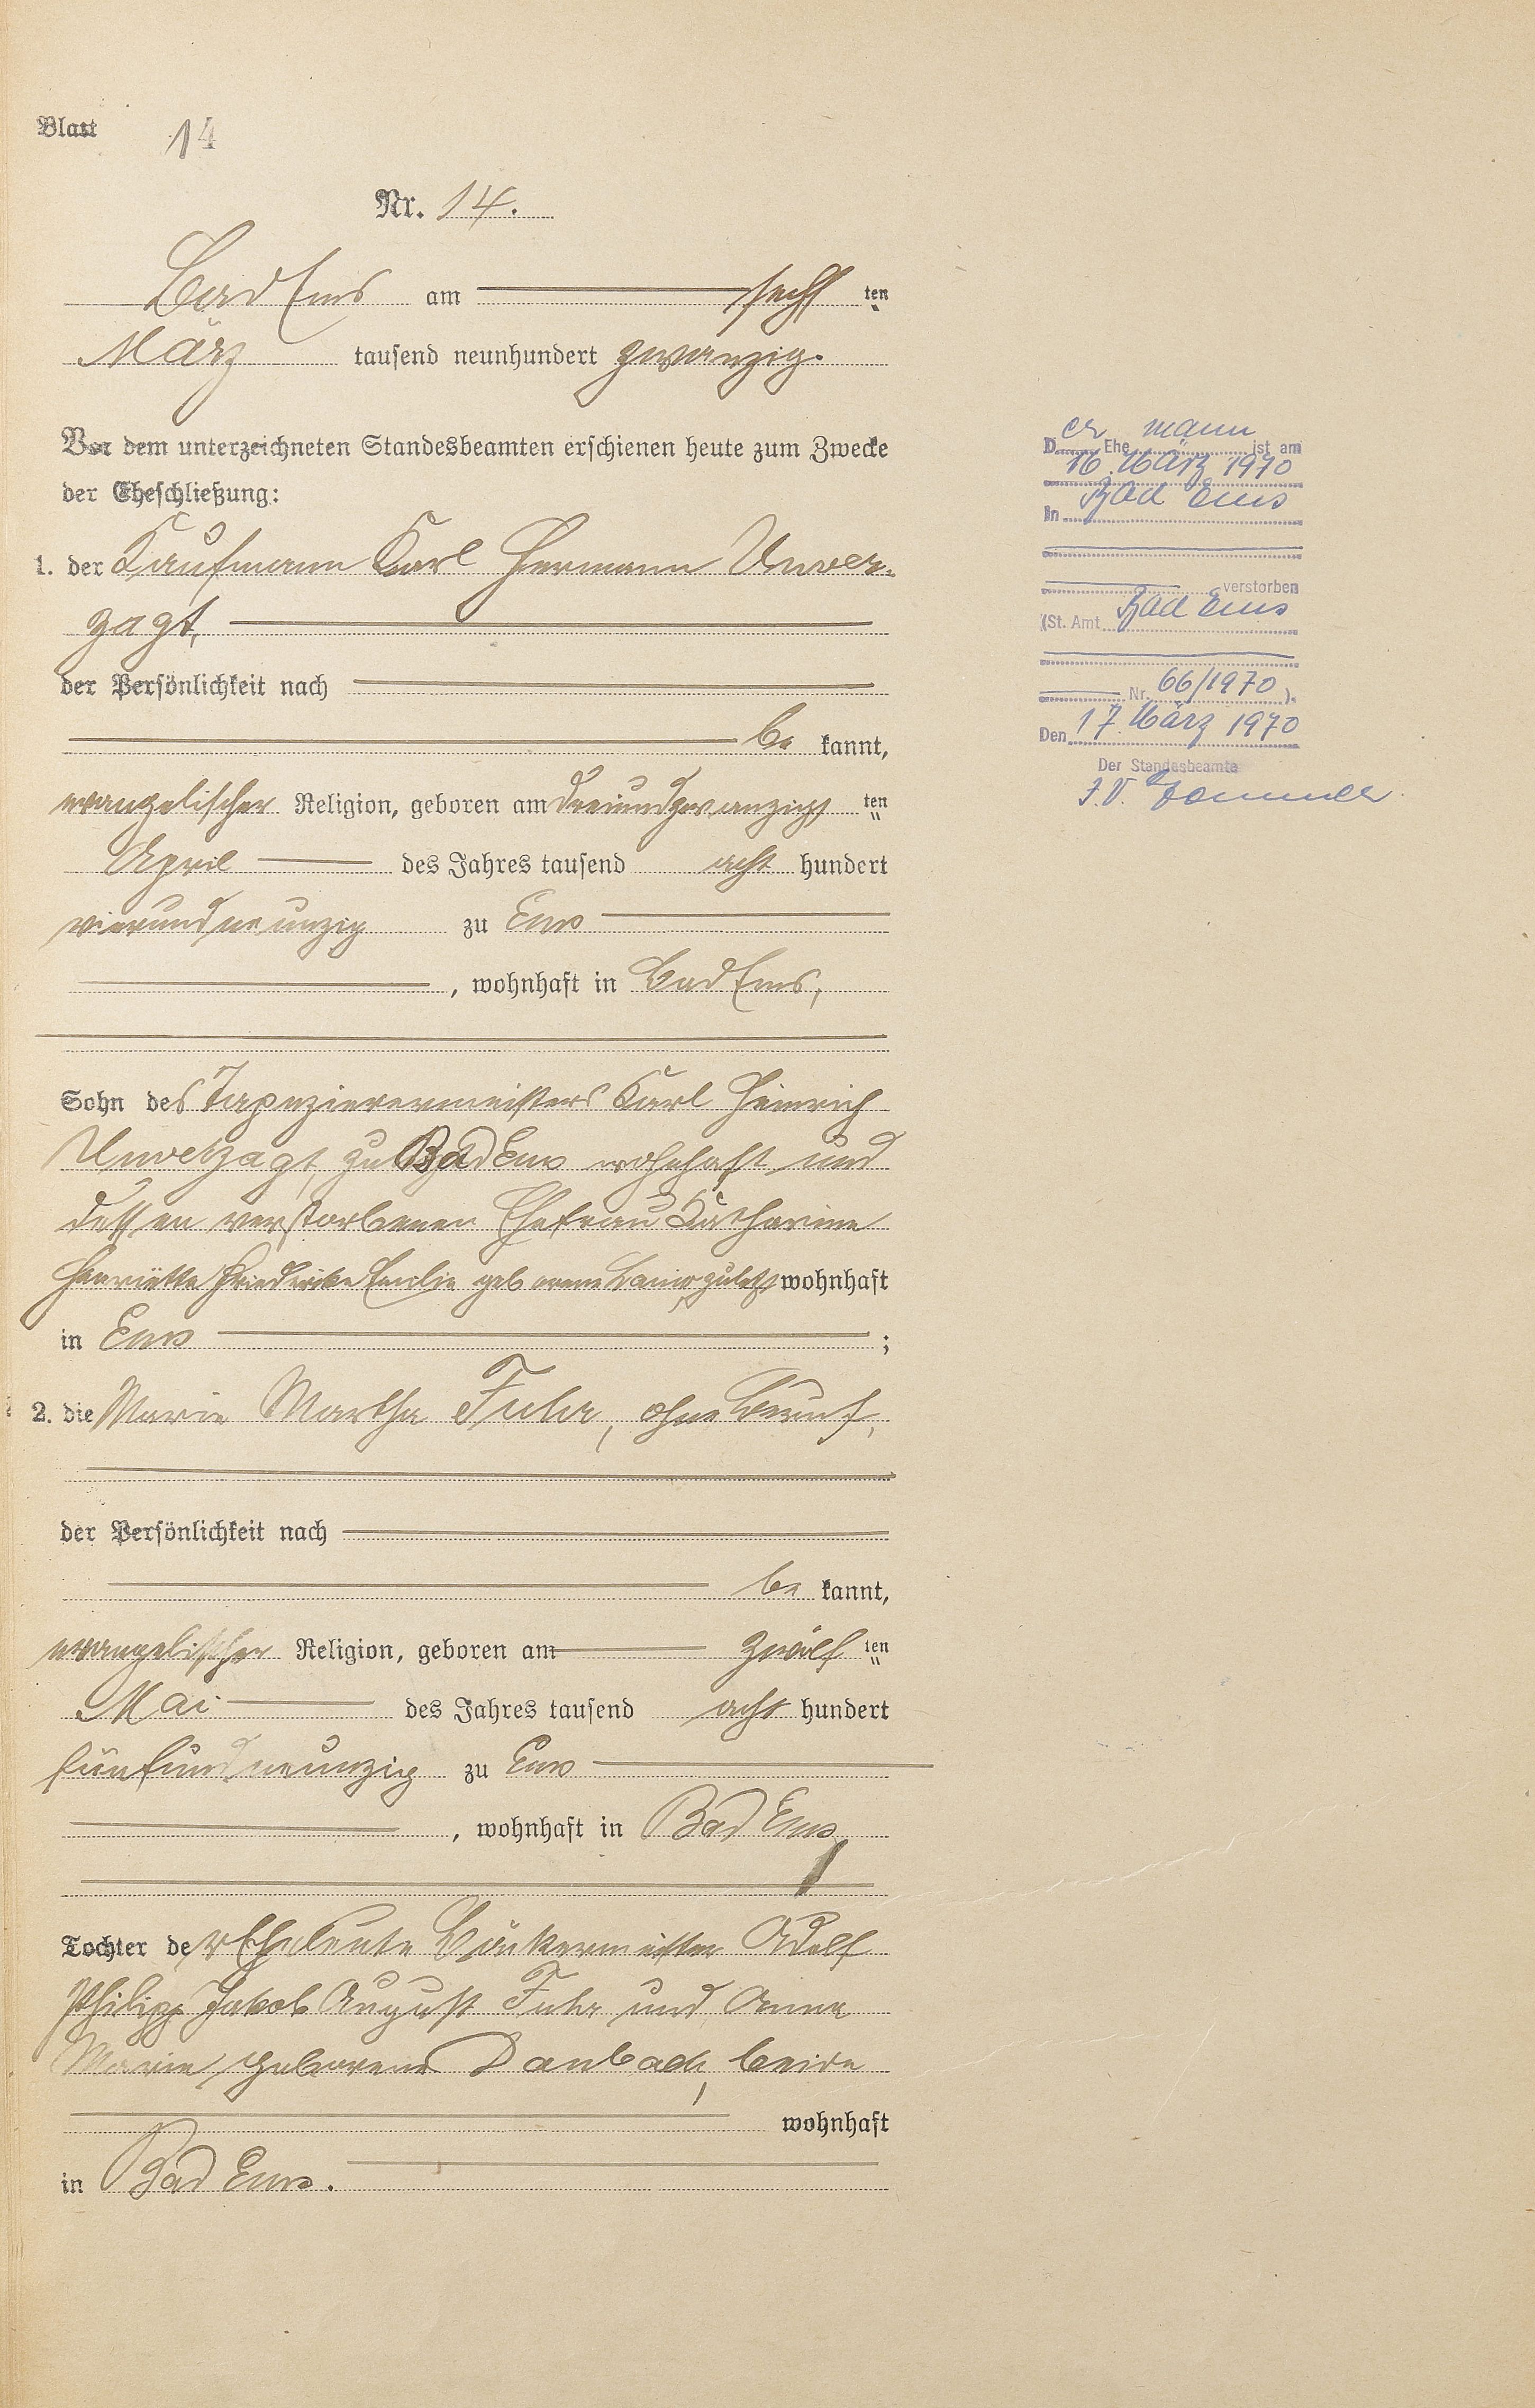 Blatt 14
Nr. 14.
Bad Ems am sechs ten
März tausend neunhundert zwanzig.
Vor dem unterzeichneten Standesbeamten erschienen heute zum Zwecke
der Eheschließung:
1. der Kaufmann Karl Hermann Unver-
zagt,
der Persönlichkeit nach
be kannt,
evangelischer Religion, geboren am dreiundzwanzigs ten
April des Jahres tausend acht hundert
vierundneunzig zu Ems
, wohnhaft in Bad Ems,
Sohn des Tapezierermeisters Karl Heinrich
Unverzagt, zu Bad Ems wohnhaft und
dessen verstorbenen Ehefrau Katharine
Henriette Friederike Emilie geborene zuletzt wohnhaft
in Ems ;
2. die Marie Martha Fuhr, ohne Beruf,
der Persönlichkeit nach
be kannt,
evangelischer Religion, geboren am zwölf ten
Mai des Jahres tausend acht hundert
fünfundneunzig zu Ems
, wohnhaft in Bad Ems,
Tochter der Eheleute Bäckermeister Adolf
Philipp Jakob August Fuhr und Anna
Marie geborene Danbach, beide
wohnhaft
in Bad Ems.
Der Ehemann ist am
16. März 1970
in Bad Ems
verstorben
(St. Amt Bad Ems
Nr. 66/1970 ).
Den 17. März 1970
Der Standesbeamte
J.V.